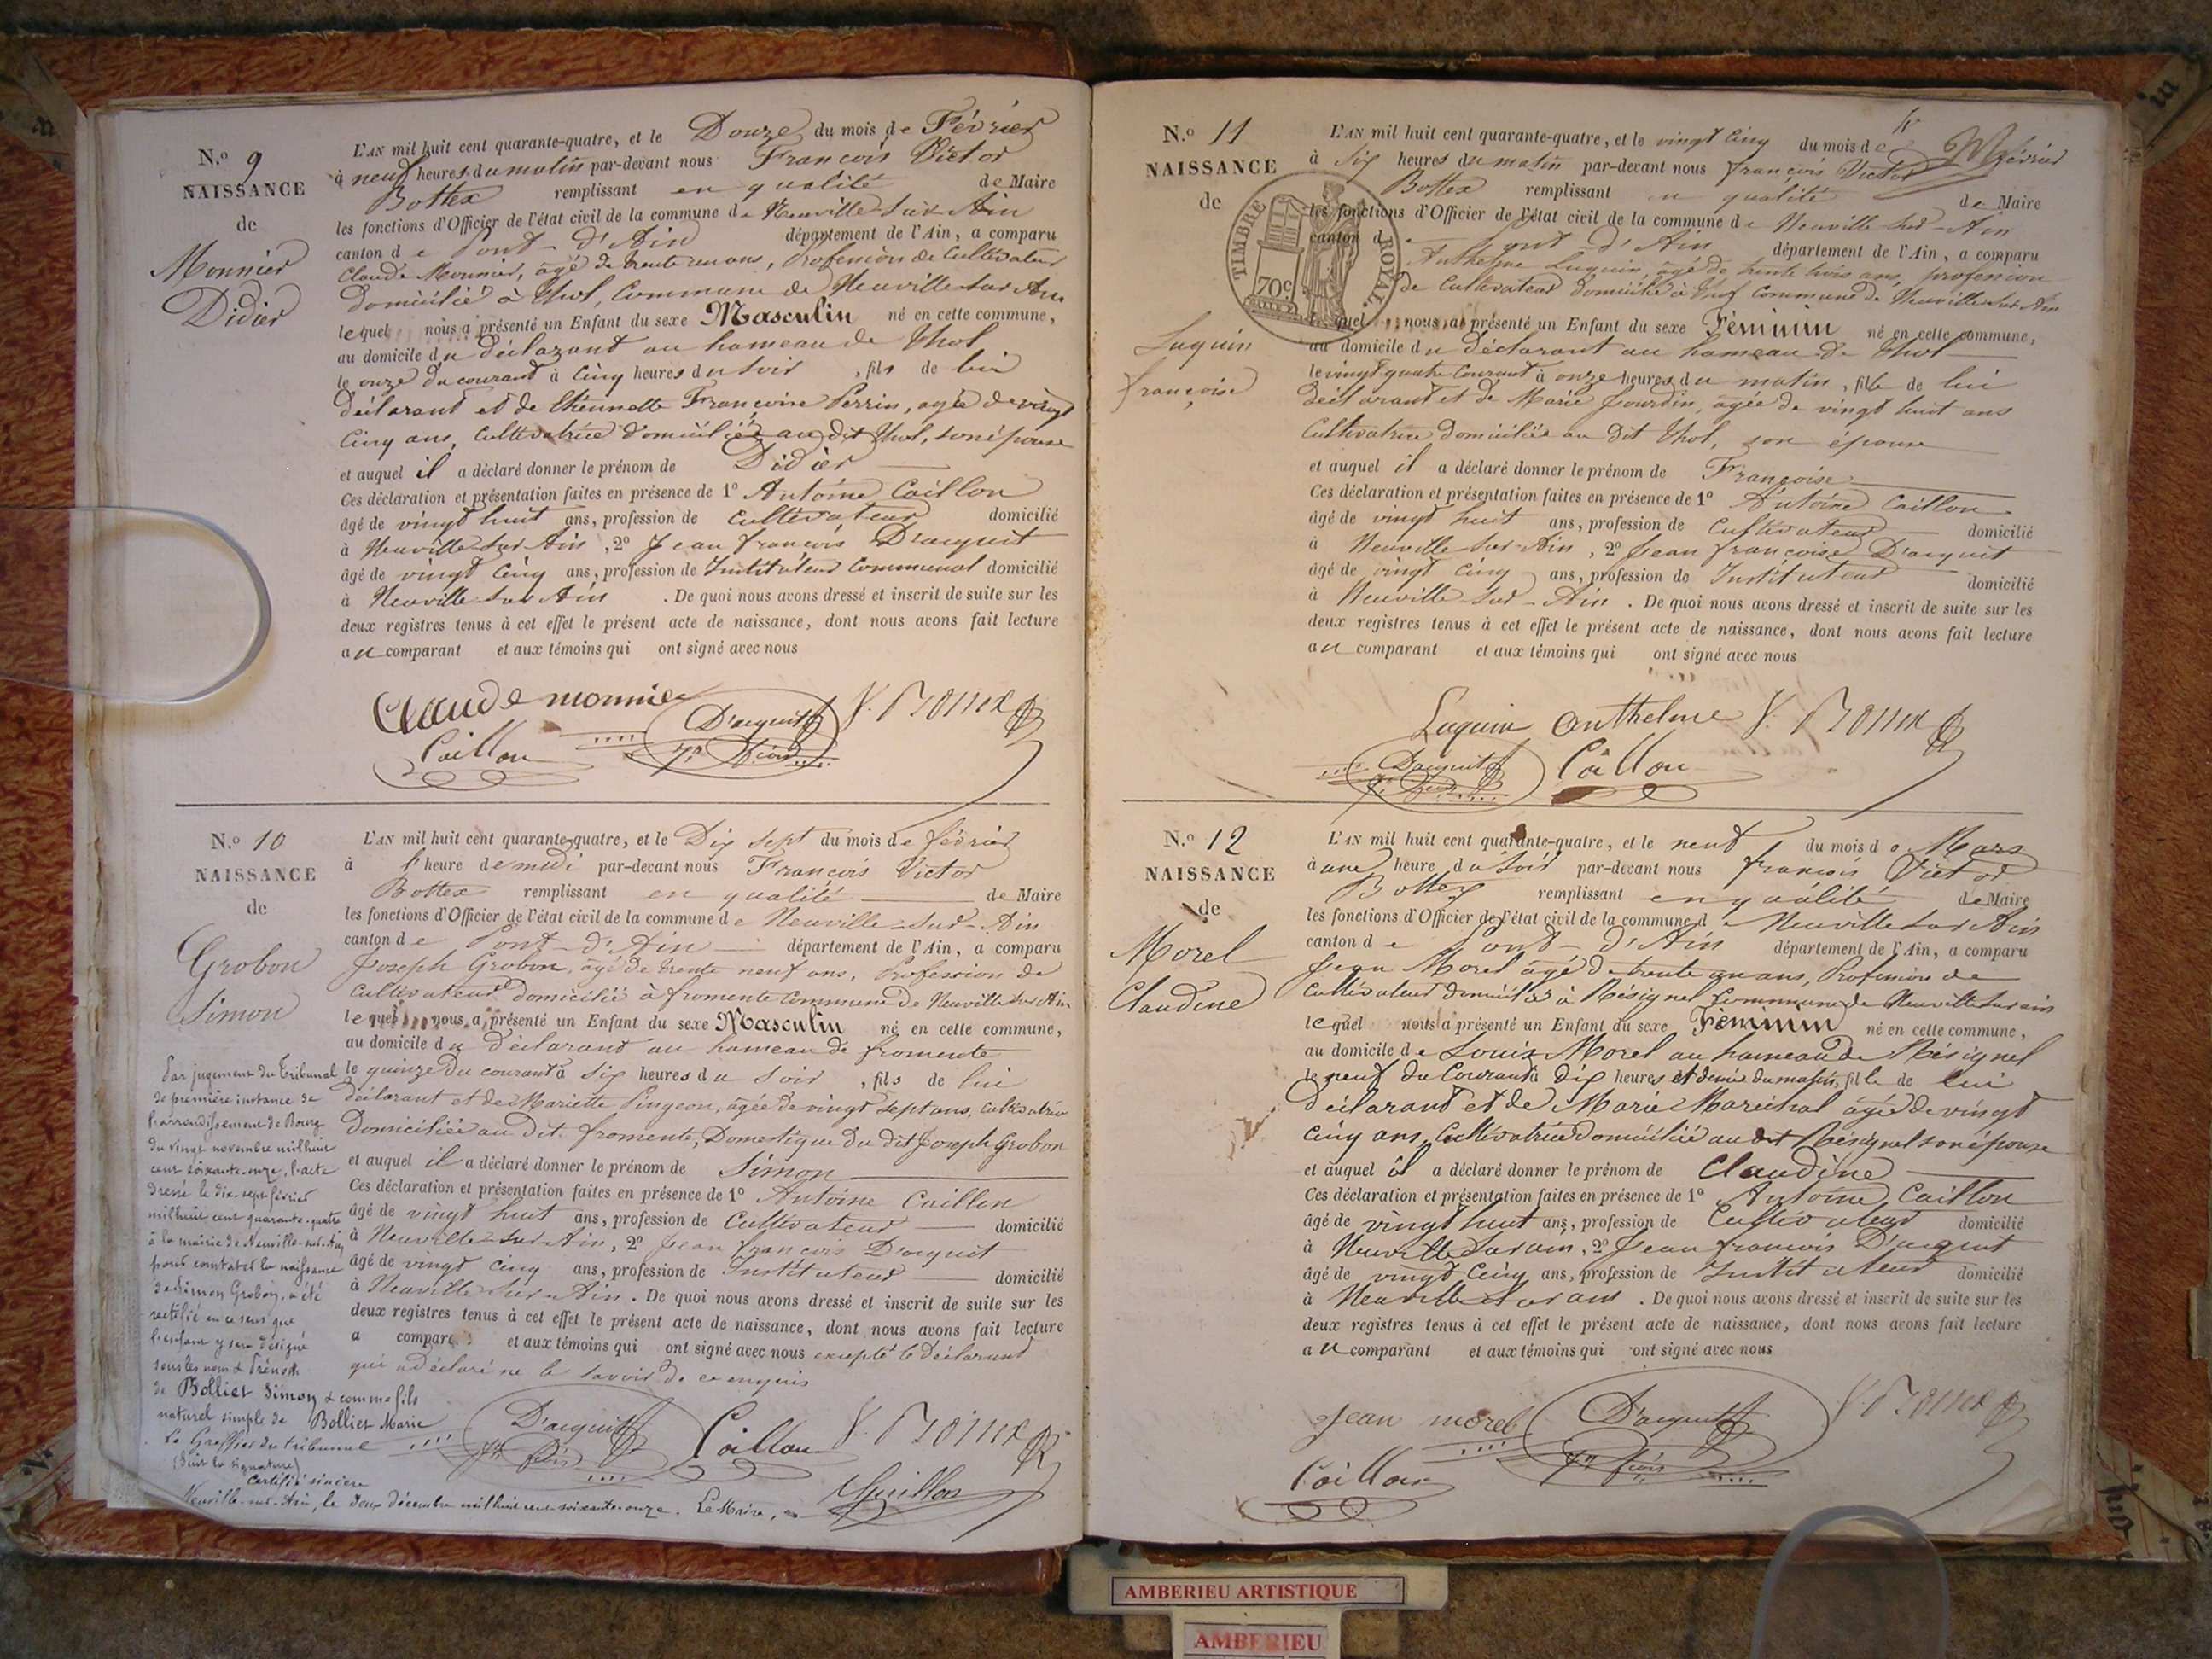 N.o 9
NAISSANCE
de
Monnier
Didier
L'AN mil huit cent quarante-quatre, et le Douze du mois de Février
à neuf heures du matin par-devant nous François Victor
Bottex remplissant en qualité de Maire
les fonctions d'Officier de l'état civil de la commune de Neuville sur Ain
canton de Pont-d'Ain département de l'Ain, a comparu
Claude Monnier, âgé de trente un ans, Profession de Cultivateur
Domicilié à Thol, Commune de Neuville sur Ain
lequel nous a présenté un Enfant du sexe Masculin né en cette commune,
au domicile du déclarant au hameau de Thol
le onze du courant à cinq heures du soir, fils de lui
déclarant et de Etiennette Françoise Perrin, agée de vingt
Cinq ans, Cultivatrice domiciliée au dit Thol, son épouse
et auquel il a déclaré donner le prénom de Didier
Ces déclaration et présentation faites en présence de 1o Antoine Caillon
âgé de vingt huit ans, profession de Cultivateur domicilié
à Neuville sur Ain, 2o Jean françois D'acquit
âgé de vingt cinq ans, profession de Instituteur Communal domicilié
à Neuville sur Ain. De quoi nous avons dressé et inscrit de suite sur les
deux registres tenus à cet effet le présent acte de naissance, dont nous avons fait lecture
au comparant et aux témoins qui ont signé avec nous
Claude monnier D'acquit V. Bottex
Caillon
N.o 10
NAISSANCE
de
Grobon
Simon
L'AN mil huit cent quarante-quatre, et le Dix sept du mois de février
à l'heure de midi par-devant nous François Victor
Bottex remplissant en qualité de Maire
les fonctions d'Officier de l'état civil de la commune de Neuville-sur-Ain
canton de Pont-d'Ain département de l'Ain, a comparu
Joseph Grobon, âgé de trente neuf ans, Profession de
Cultivateur domicilié à fromente Commune de Neuville sur Ain
lequel nous a présenté un Enfant du sexe Masculin né en cette commune,
au domicile du déclarant au hameau de fromente
le quinze du courant à six heures du soir, fils de lui
déclarant et de Mariette Pingeon, âgée de vingt sept ans, Cultivatrice
Domiciliée au dit fromente, Domestique du dit Joseph Grobon
et auquel il a déclaré donner le prénom de Simon
Ces déclaration et présentation faites en présence de 1o Antoine Caillon
âgé de vingt huit ans, profession de Cultivateur domicilié
à Neuville sur Ain, 2o Jean françois D'acquit
âgé de vingt cinq ans, profession de Instituteur domicilié
à Neuville sur Ain. De quoi nous avons dressé et inscrit de suite sur les
deux registres tenus à cet effet le présent acte de naissance, dont nous avons fait lecture
a compara et aux témoins qui ont signé avec nous excepté le déclarant
qui a déclaré ne le savoir de ce enquis
D'acquit Caillon V. Bottex
Par jugement du Tribunal
de première instance de
l'arrondissement de Bourg
du vingt novembre mil huit
cent soixante-onze, l'acte
dressé le dix-sept février
mil huit cent quarante-quatre
à la mairie de Neuville-sur-Ain
pour constater la naissance
de Simon Grobon, a été
rectifié en ce sens que
l'enfant y sera désigné
sous les nom & Prénom
de Bollier Simon & comme fils
naturel simple de Bollier Marie
Le Greffier du tribunal
(Suit la signature)
Certifié sincère
Neuville-sur-Ain, le deux décembre mil huit cent soixante-onze. Le Maire,
N.o 11
NAISSANCE
de
Luquin
françoise
TIMBRE ROYAL.
70c
L'AN mil huit cent quarante-quatre, et le vingt cinq du mois de février
à six heures du matin par-devant nous françois Victor
Bottex remplissant en qualité de Maire
les fonctions d'Officier de l'état civil de la commune de Neuville sur-Ain
canton de Pont-d'Ain département de l'Ain, a comparu
Anthelme Luquin, âgé de trente trois ans, profession
de Cultivateur domicilié à Thol Commune de Neuville sur Ain
lequel nous a présenté un Enfant du sexe Féminin né en cette commune,
au domicile du déclarant au hameau de Thol
le vingt quatre Courant à onze heures du matin, fille de lui
déclarant et de Marie Jourdin, âgée de vingt huit ans
Cultivatrice domiciliée au dit Thol, son épouse
et auquel il a déclaré donner le prénom de Françoise
Ces déclaration et présentation faites en présence de 1o Antoine Caillon
âgé de vingt huit ans, profession de Cultivateur domicilié
à Neuville sur-Ain, 2o Jean françoise D'acquit
âgé de vingt cinq ans, profession de Instituteur domicilié
à Neuville sur-Ain. De quoi nous avons dressé et inscrit de suite sur les
deux registres tenus à cet effet le présent acte de naissance, dont nous avons fait lecture
au comparant et aux témoins qui ont signé avec nous
Luquin Anthelme V. Bottex
D'acquit Caillon
N.o 12
NAISSANCE
de
Morel
Claudine
L'AN mil huit cent quarante-quatre, et le neuf du mois de Mars
à une heure du soir par-devant nous françois Victor
Bottex remplissant en qualité de Maire
les fonctions d'Officier de l'état civil de la commune d Neuville sur Ain
canton de Pont-d'Ain département de l'Ain, a comparu
Jean Morel âgé de trente un ans, Profession de
Cultivateur domicilié à Résignel Commune de Neuville sur ain
lequel nous a présenté un Enfant du sexe Féminin né en cette commune,
au domicile de Louis Morel au hameau de Résignel
le neuf du Courant à dix heures et demie du matin, fille de lui
Déclarant et de Marie Maréchal âgée de vingt
cinq ans, Cultivatrice domiciliée au dit Résignel son épouse
et auquel il a déclaré donner le prénom de Claudine
Ces déclaration et présentation faites en présence de 1o Antoine Caillon
âgé de vingt huit ans, profession de Cultivateur domicilié
à Neuville sur ain, 2o Jean françois D'acquit
âgé de vingt cinq ans, profession de Instituteur domicilié
à Neuville sur ain. De quoi nous avons dressé et inscrit de suite sur les
deux registres tenus à cet effet le présent acte de naissance, dont nous avons fait lecture
au comparant et aux témoins qui ont signé avec nous
Jean morel D'acquit V. Bottex
Caillon
AMBERIEU ARTISTIQUE
AMBERIEU